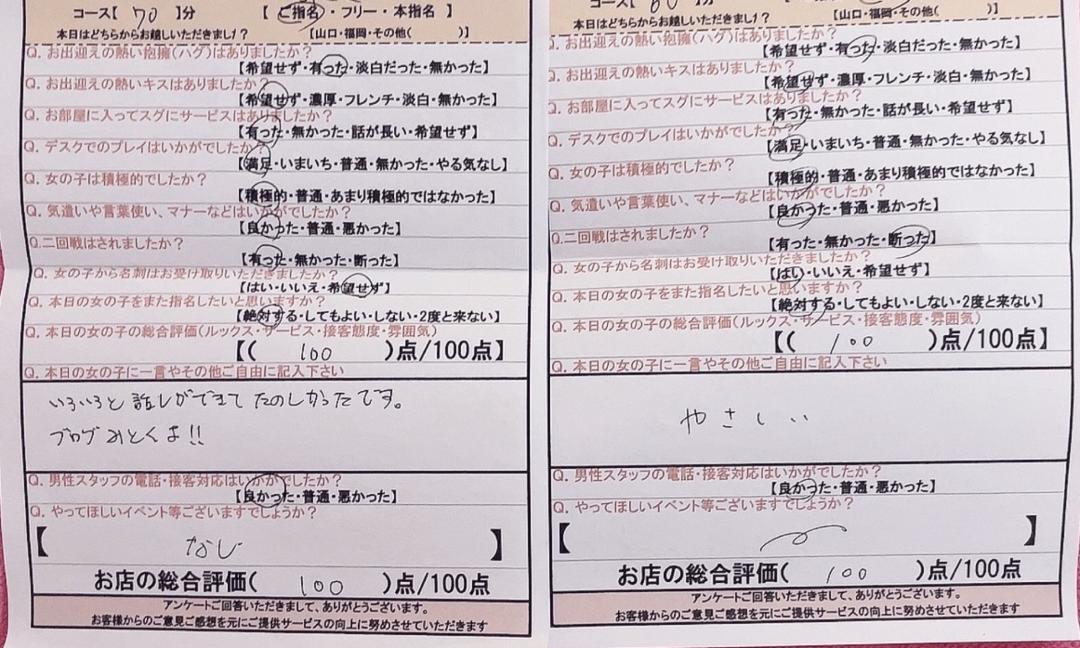 コース【 70 】分 【 ご指名・フリー・本指名 】
本日はどちらからお越しいただきました? 【山口・福岡・その他( )】
Q. お出迎えの熱い抱擁(ハグ)はありましたか?
【希望せず・有った・淡白だった・無かった】
Q. お出迎えの熱いキスはありましたか?
【希望せず・濃厚・フレンチ・淡白・無かった】
Q. お部屋に入ってスグにサービスはありましたか?
【有った・無かった・話が長い・希望せず】
Q. デスクでのプレイはいかがでしたか?
【満足・いまいち・普通・無かった・やる気なし】
Q. 女の子は積極的でしたか?
【積極的・普通・あまり積極的ではなかった】
Q. 気遣いや言葉使い、マナーなどはいかがでしたか?
【良かった・普通・悪かった】
Q.二回戦はされましたか?
【有った・無かった・断った】
Q. 女の子から名刺はお受け取りいただきましたか?
【はい・いいえ・希望せず】
Q. 本日の女の子をまた指名したいと思いますか?
【絶対する・してもよい・しない・2度と来ない】
Q. 本日の女の子の総合評価(ルックス・サービス・接客態度・雰囲気)
【( 100 )点/100点】
Q. 本日の女の子に一言やその他ご自由に記入下さい
いろいろと話しができてたのしかったです。
ブログみとくよ!!
Q. 男性スタッフの電話・接客対応はいかがでしたか?
【良かった・普通・悪かった】
Q. やってほしいイベント等ございますでしょうか?
【 なし 】
お店の総合評価( 100 )点/100点
アンケートご回答いただきまして、ありがとうございます。
お客様からのご意見ご感想を元にご提供サービスの向上に努めさせていただきます
コース【 60 】分
本日はどちらからお越しいただきました? 【山口・福岡・その他( )】
Q. お出迎えの熱い抱擁(ハグ)はありましたか?
【希望せず・有った・淡白だった・無かった】
Q. お出迎えの熱いキスはありましたか?
【希望せず・濃厚・フレンチ・淡白・無かった】
Q. お部屋に入ってスグにサービスはありましたか?
【有った・無かった・話が長い・希望せず】
Q. デスクでのプレイはいかがでしたか?
【満足・いまいち・普通・無かった・やる気なし】
Q. 女の子は積極的でしたか?
【積極的・普通・あまり積極的ではなかった】
Q. 気遣いや言葉使い、マナーなどはいかがでしたか?
【良かった・普通・悪かった】
Q.二回戦はされましたか?
【有った・無かった・断った】
Q. 女の子から名刺はお受け取りいただきましたか?
【はい・いいえ・希望せず】
Q. 本日の女の子をまた指名したいと思いますか?
【絶対する・してもよい・しない・2度と来ない】
Q. 本日の女の子の総合評価(ルックス・サービス・接客態度・雰囲気)
【( 100 )点/100点】
Q. 本日の女の子に一言やその他ご自由に記入下さい
やさしい
Q. 男性スタッフの電話・接客対応はいかがでしたか?
【良かった・普通・悪かった】
Q. やってほしいイベント等ございますでしょうか?
【 】
お店の総合評価( 100 )点/100点
アンケートご回答いただきまして、ありがとうございます。
お客様からのご意見ご感想を元にご提供サービスの向上に努めさせていただきます